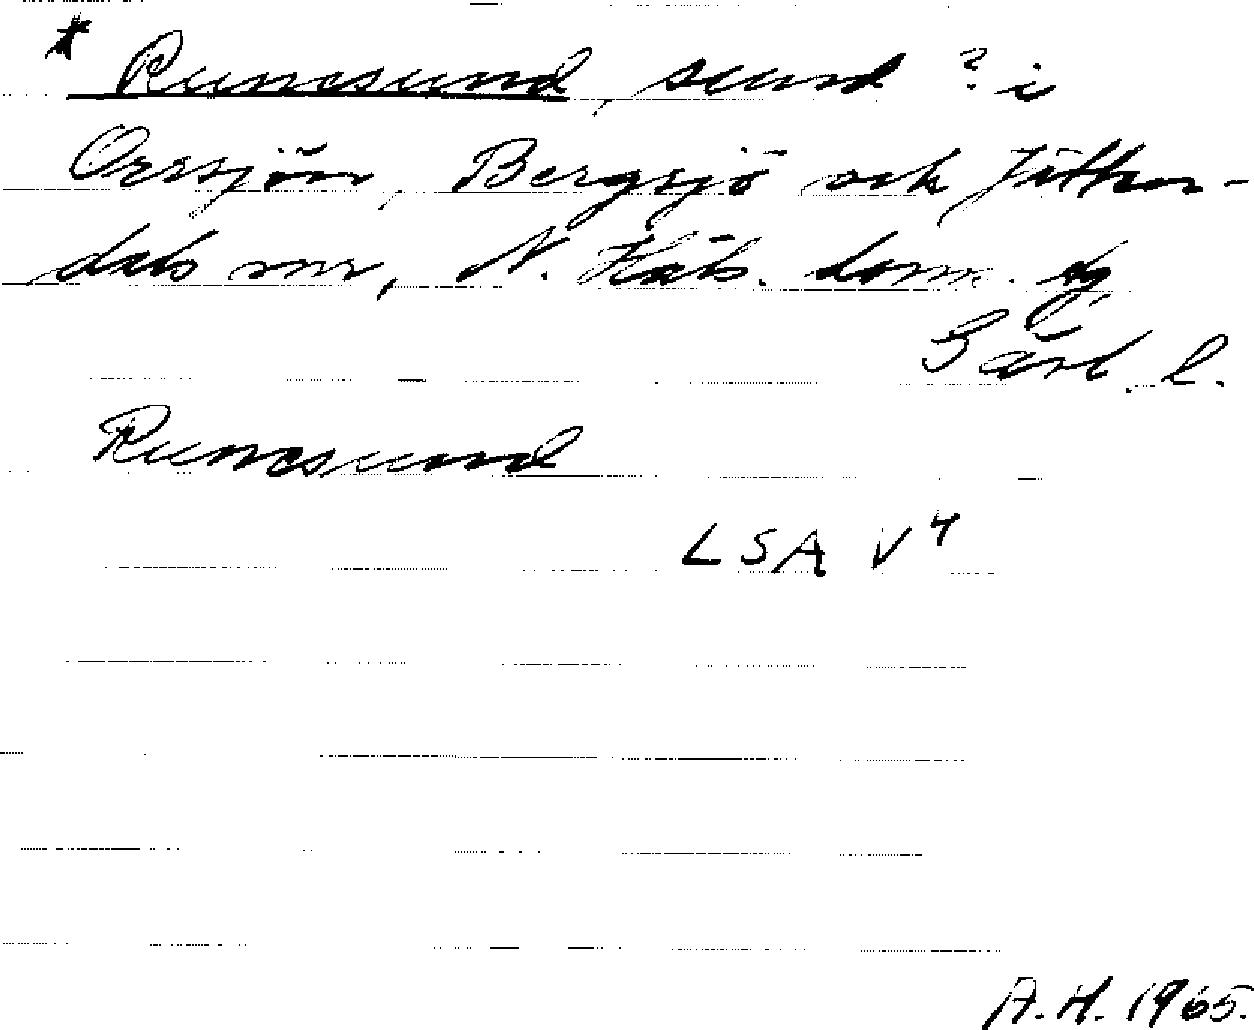 * Runesund, sund ? i
Orrsjön, Bergsjö och Jätten-
dals snr, N. Häls. doms.
Gävl. l.
Runesund
LSA V 4
A.H. 1965.